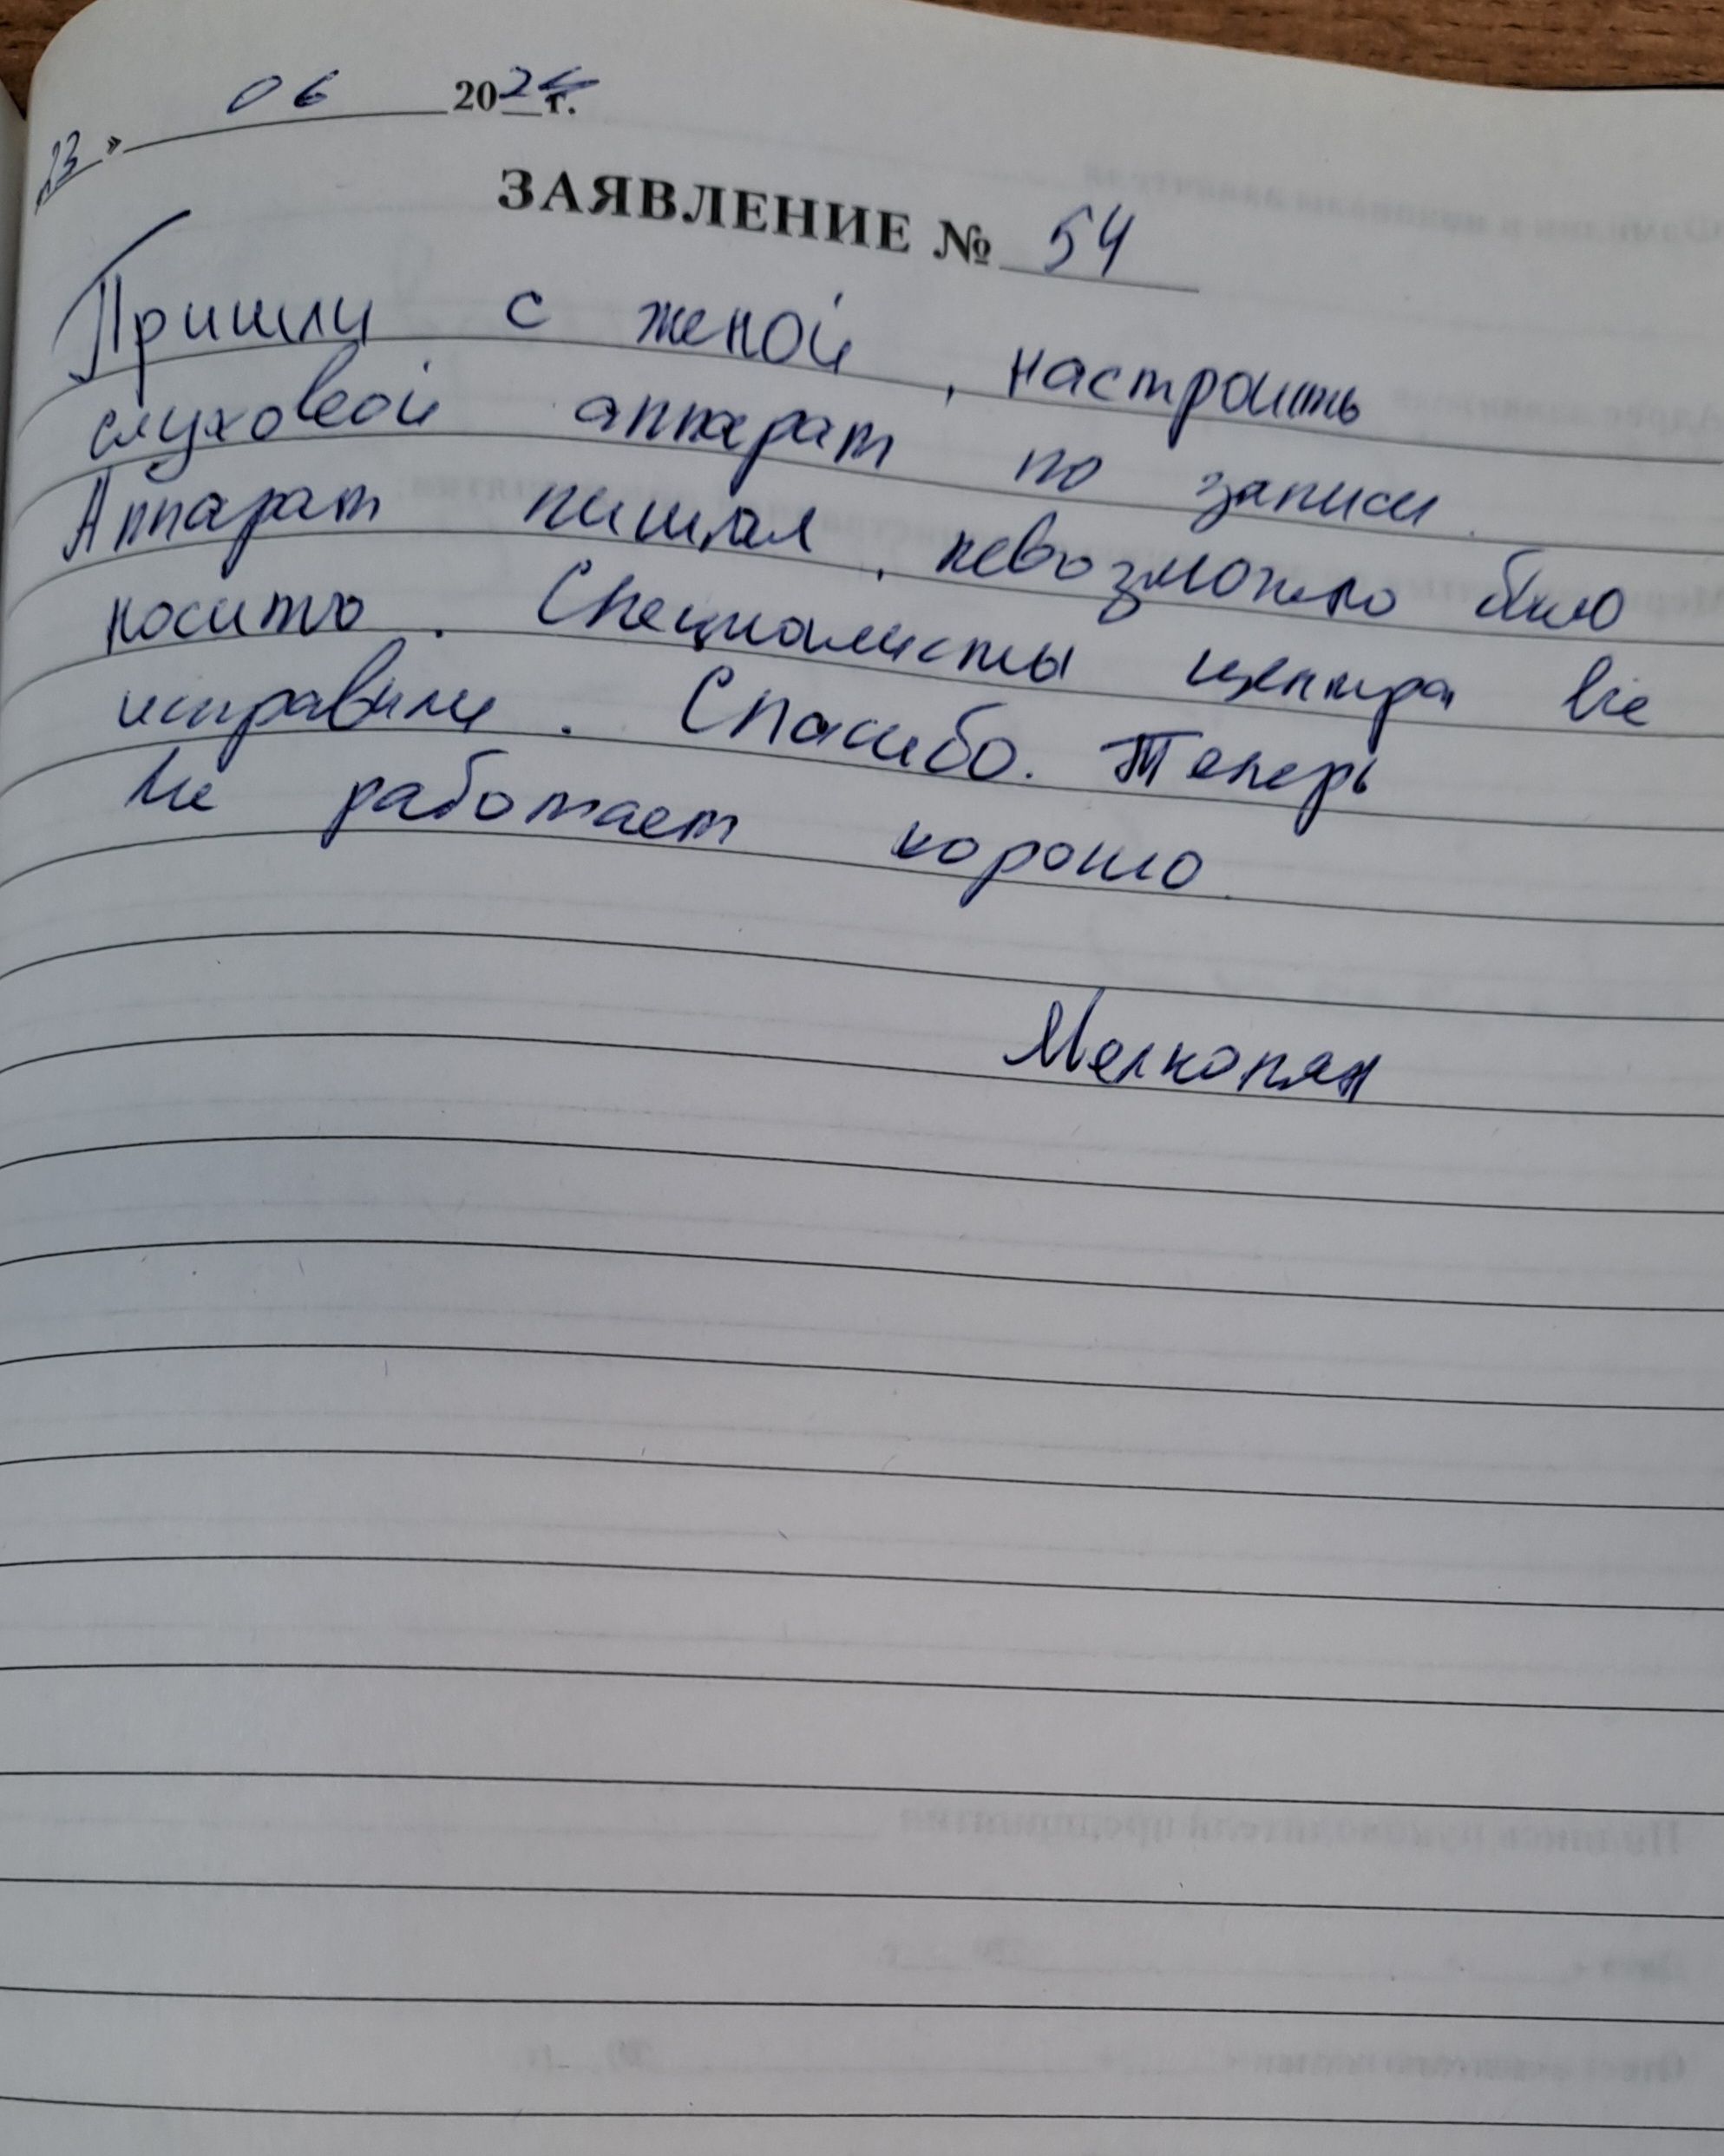 23 » 06 2024 г.
ЗАЯВЛЕНИЕ № 54
Пришли с женой, настроить
слуховой аппарат по записи.
Аппарат пищал, невозможно было
носить. Специалисты центра все
исправили. Спасибо. Теперь
все работает хорошо.
Мелконян